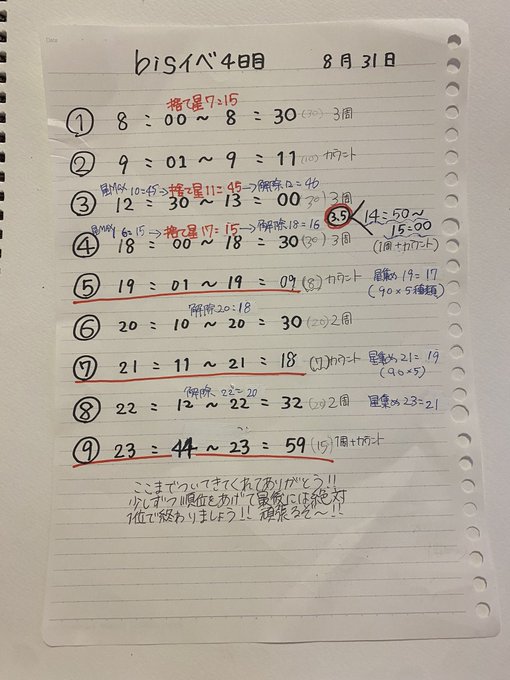 bisイベ4日目 8月31日
捨て星7=15
① 8:00~8:30 (30) 3周
② 9:01~9:11 (10) カウント
星MAX 10=45→捨て星11=45→解除12=46
③ 12:30~13:00 (30) 3周
3.5 14=50~15=00
(1周+カウント)
星MAX 6=15→捨て星17=15→解除18=16
④ 18:00~18:30 (30) 3周
⑤ 19:01~19:09 (8) カウント 星集め19=17
(90×5種類)
解除20=18
⑥ 20:10~20:30 (20) 2周
⑦ 21:11~21:18 (7) カウント 星集め21=19
(90×5)
解除22=20
⑧ 22:12~22:32 (20) 2周 星集め23=21
⑨ 23:44~23:59 (15) 1周+カウント
ここまでついてきてくれてありがとう!!
少しずつ順位をあげて最後には絶対
1位で終わりましょう!! 頑張るぞ~!!